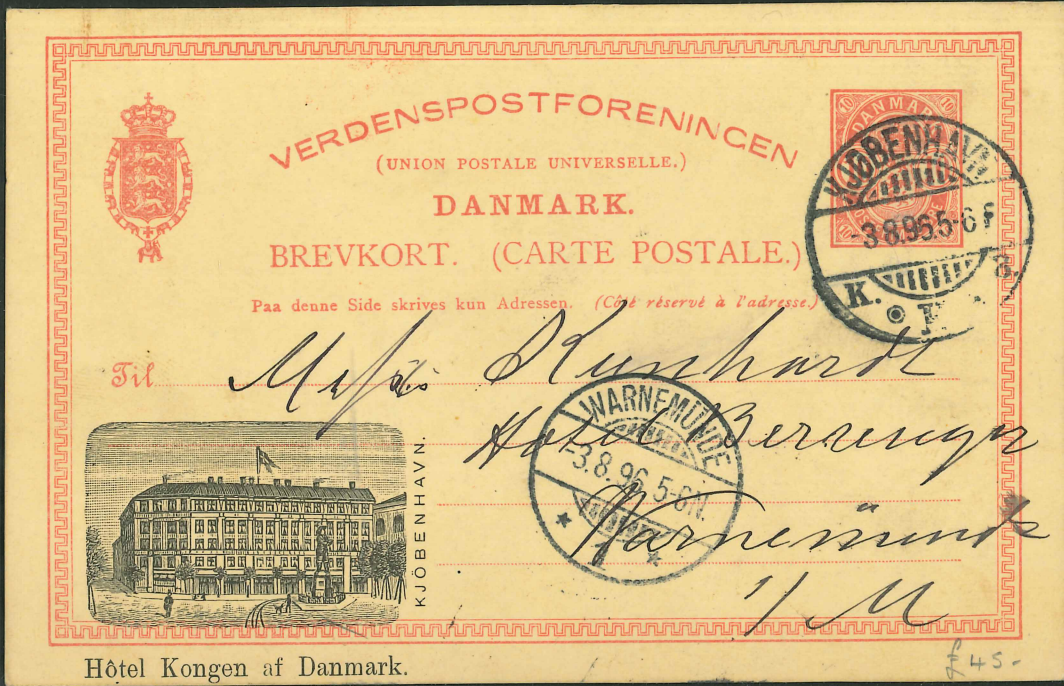 VERDENSPOSTFORENINGEN
(UNION POSTALE UNIVERSELLE.)
DANMARK.
BREVKORT. (CARTE POSTALE.)
Paa denne Side skrives kun Adressen. (Côté réservé à l'adresse.)
10 DANMARK 10
KJØBENHAVN
-3.8.96.5-6 E
K.
Til
Kunhardt
Hotel Berringer
Warnemünde
i/M
WARNEMÜNDE
-3.8.96.5-6N.
* 1 *
KJÖBENHAVN.
Hôtel Kongen af Danmark.
£45-